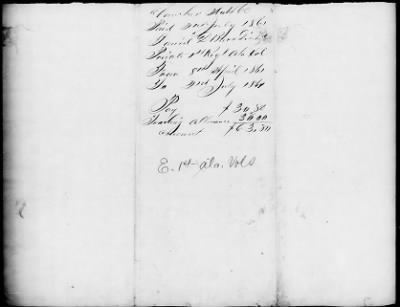 Voucher
Paid 3rd July 1861
Daniel
Private 1st Regt Ala Vol
From 8th April 1861
To 3rd July 1861
Pay $ 30.80
Traveling Allowance 30.00
Amount $ 63.80
E. 1st Ala. Vols